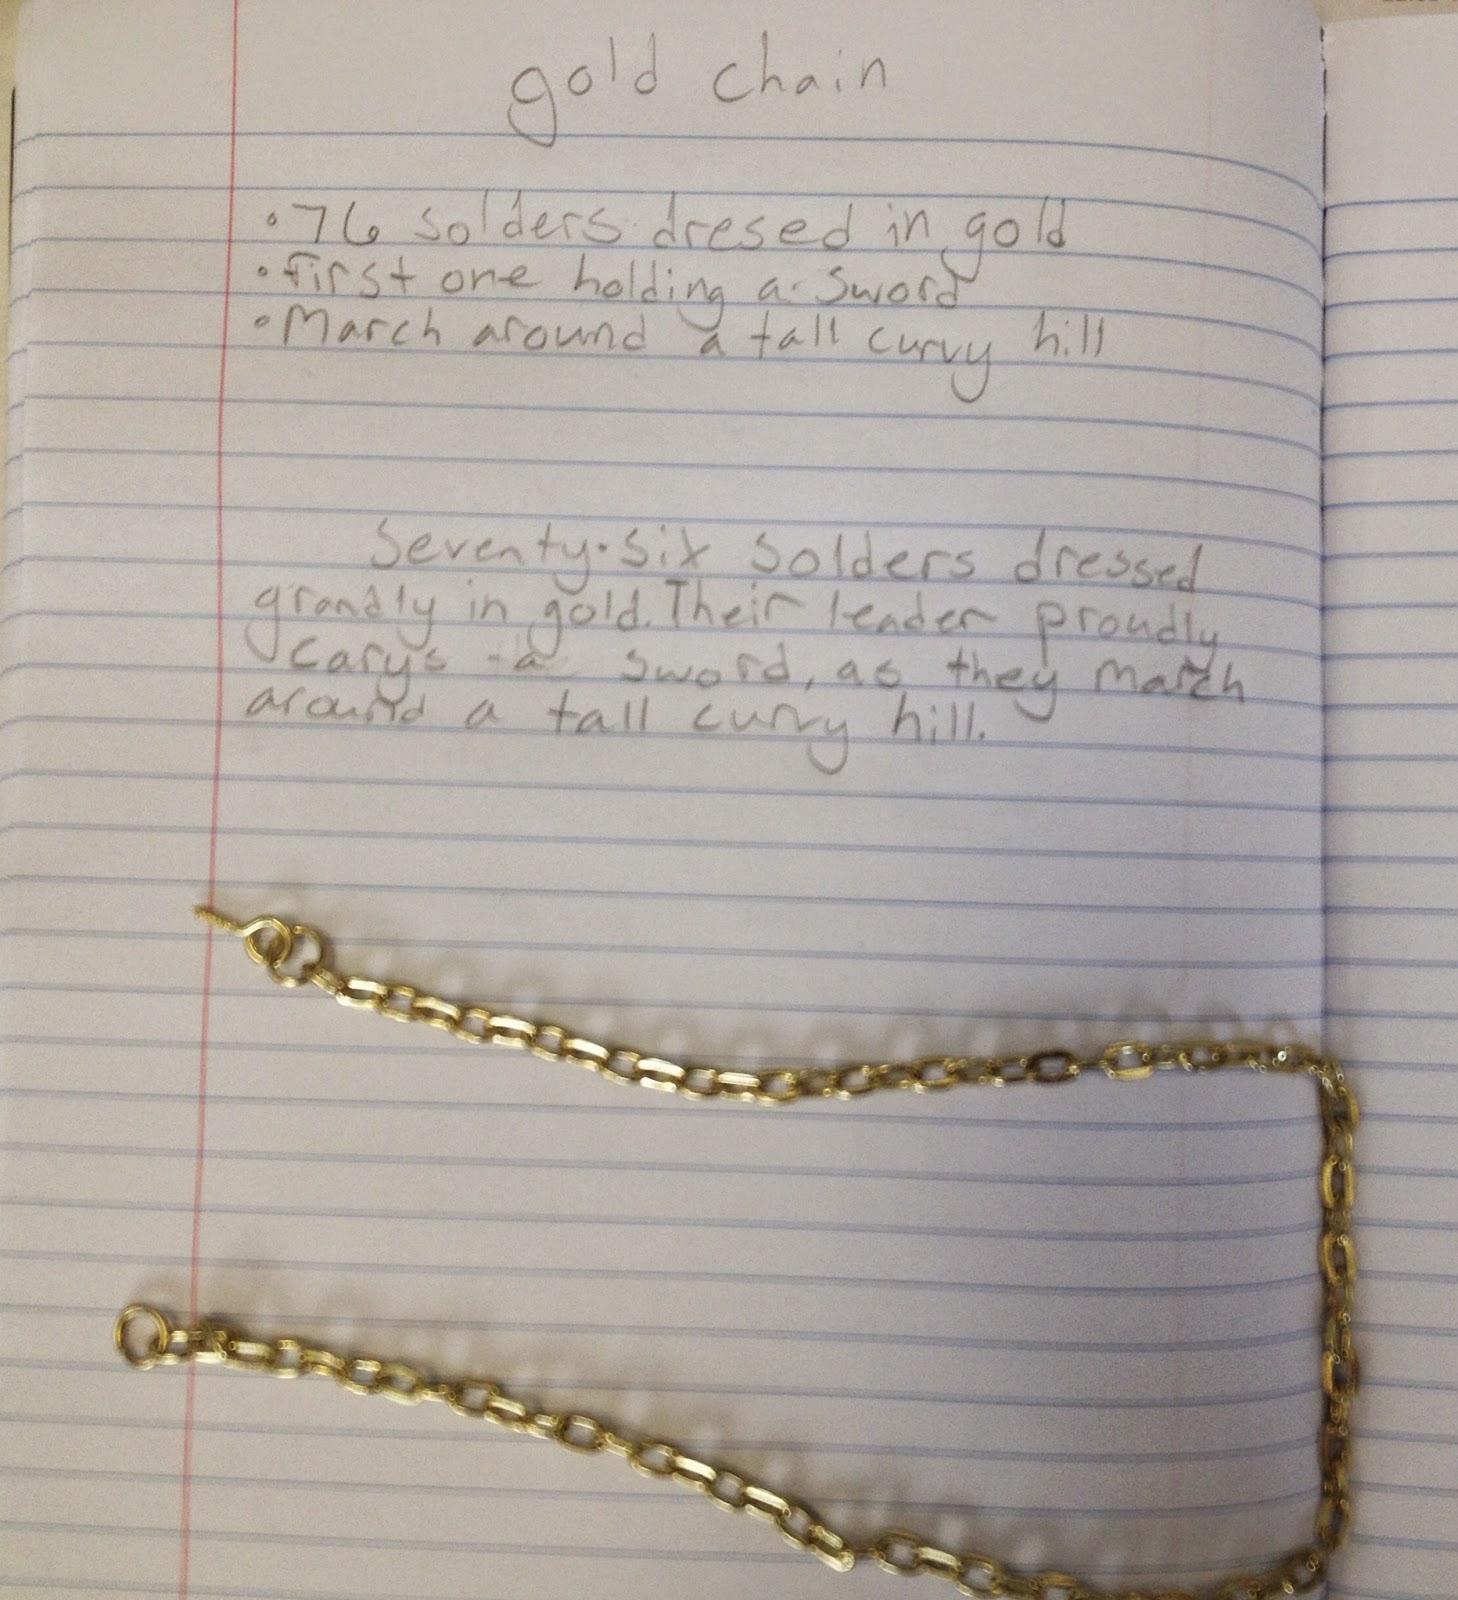 gold chain
• 76 solders dresed in gold
• First one holding a sword
• March around a tall curvy hill
Seventy-six solders dressed
grandly in gold. Their leader proudly
carys a sword, as they march
around a tall curvy hill.